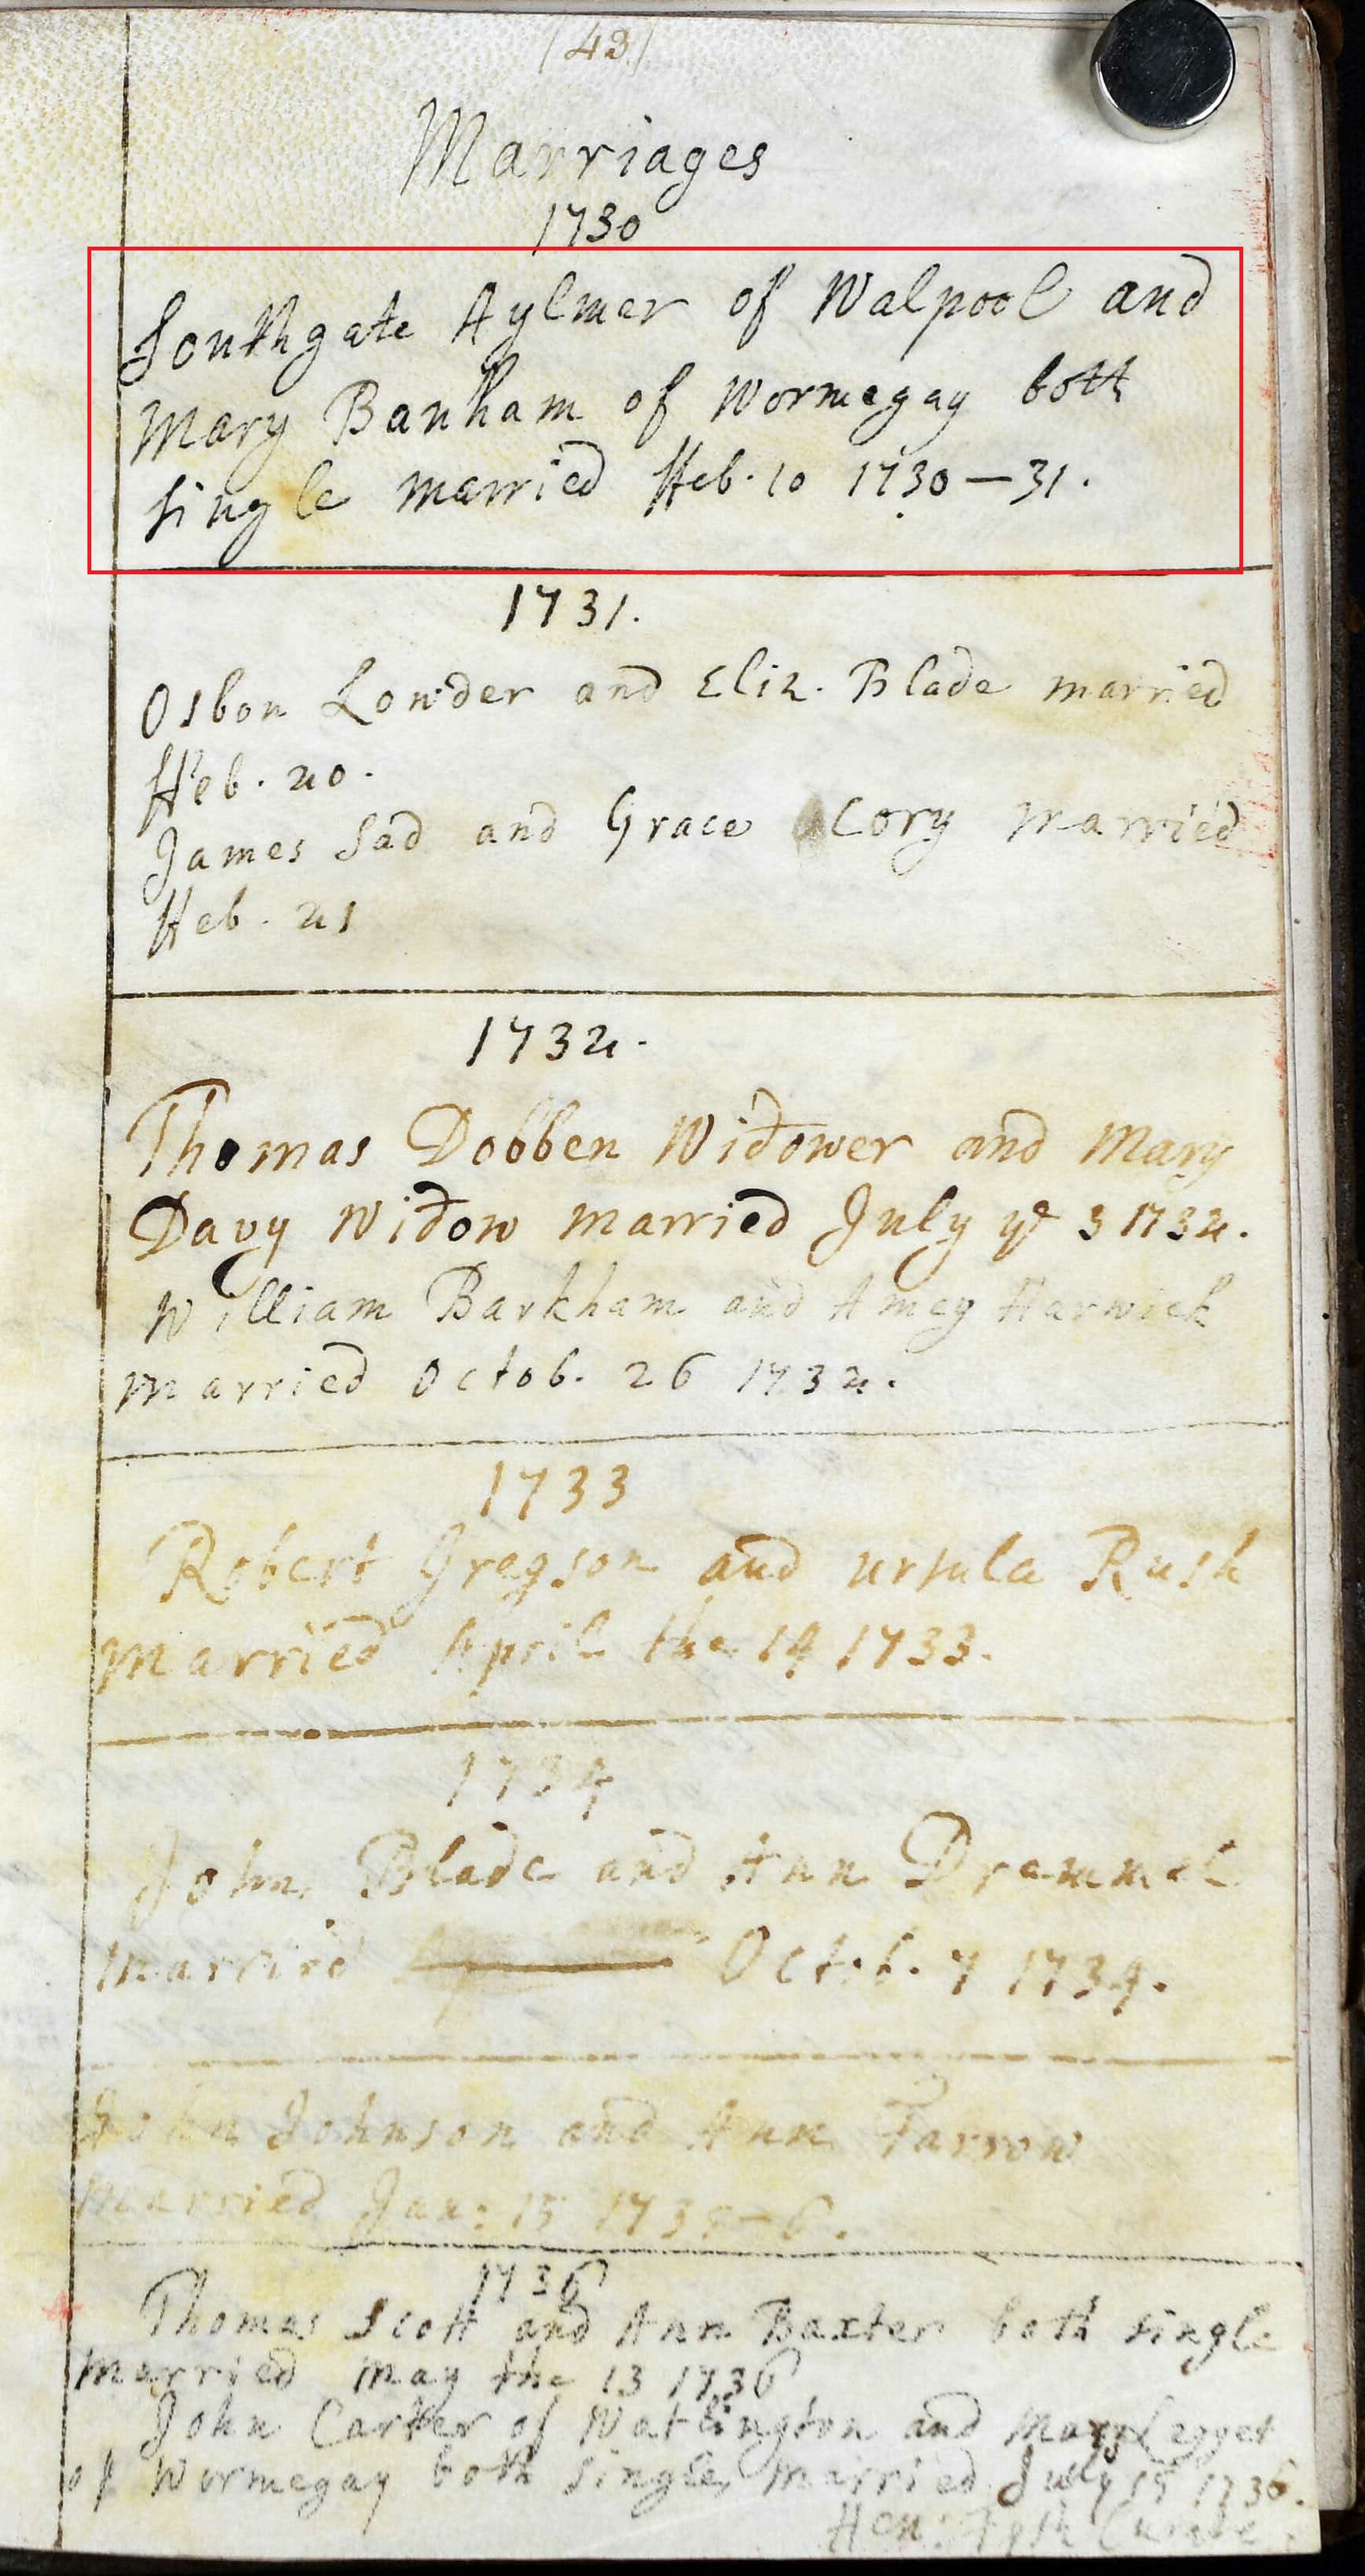 (43)
Marriages
1730
Southgate Aylmer of Walpool and
Mary Banham of Wormegay both
single married Feb. 10 1730-31.
1731.
Osbon Lowder and Eliz. Blade married
Feb. 20.
James Sad and Grace Cory married
Feb. 21
1732.
Thomas Dobben Widower and Mary
Davy Widow married July ye 3 1732.
William Barkham and Amey Harwick
married Octob. 26 1732.
1733
Robert Gregson and Ursula Rush
married April the 14 1733.
1734
John Blade and Ann Drammel
married Octob. 7 1734.
John Johnson and Ann Farrow
married Jan: 15 1735-6.
1736
Thomas Scott and Ann Baxter both single
married May the 13 1736
John Carter of Watlington and Mary Legget
of Wormegay both single married July 15 1736.
Hen: Curate